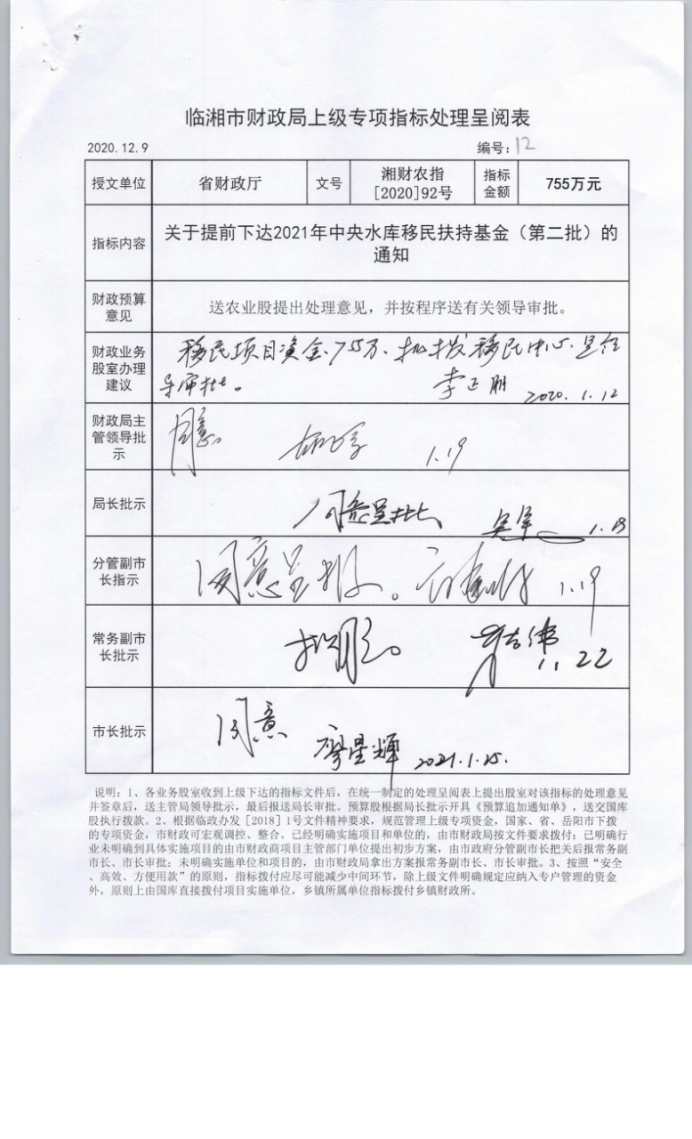 临湘市财政局上级专项指标处理呈阅表
2020.12.9 编号：12
授文单位 省财政厅 文号 湘财农指[2020]92号 指标金额 755万元
指标内容 关于提前下达2021年中央水库移民扶持基金（第二批）的
通知
财政预算意见 送农业股提出处理意见，并按程序送有关领导审批。
财政业务股室办理建议 移民项目资金755万、拟拨移民中心.呈领
导审批。 2020.1.12
财政局主管领导批示 同意 1.19
局长批示 同意呈批 1.18
分管副市长指示 同意呈报。 1.19
常务副市长批示 1.22
市长批示 同意 廖星辉 2021.1.25.
说明：1、各业务股室收到上级下达的指标文件后，在统一制定的处理呈阅表上提出股室对该指标的处理意见
并签章后，送主管局领导批示，最后报送局长审批。预算股根据局长批示开具《预算追加通知单》，送交国库
股执行拨款。2、根据临政办发［2018］1号文件精神要求，规范管理上级专项资金，国家、省、岳阳市下拨
的专项资金，市财政可宏观调控、整合。已经明确实施项目和单位的，由市财政局按文件要求拨付；已明确行
业未明确到具体实施项目的由市财政商项目主管部门单位提出初步方案，由市政府分管副市长把关后报常务副
市长、市长审批；未明确实施单位和项目的，由市财政局拿出方案报常务副市长、市长审批。3、按照“安全
、高效、方便用款”的原则，指标拨付应尽可能减少中间环节，除上级文件明确规定应纳入专户管理的资金
外，原则上由国库直接拨付项目实施单位，乡镇所属单位指标拨付乡镇财政所。